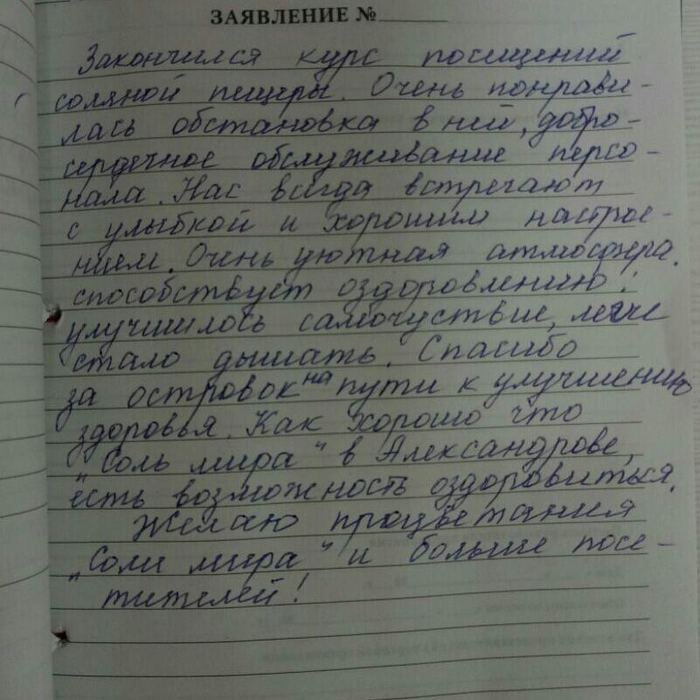 ЗАЯВЛЕНИЕ №
Закончился курс посещений
соляной пещеры. Очень понрави-
лась обстановка в ней, добро-
сердечное обслуживание персо-
нала. Нас всегда встречают
с улыбкой и хорошим настрое-
нием. Очень уютная атмосфера
способствует оздоровлению:
улучшилось самочуствие, легче
стало дышать. Спасибо
за островок на пути к улучшению
здоровья. Как хорошо что
„Соль мира" в Александрове,
есть возможность оздоровиться.
Желаю процветания
„Соли мира" и больше посе-
тителей!